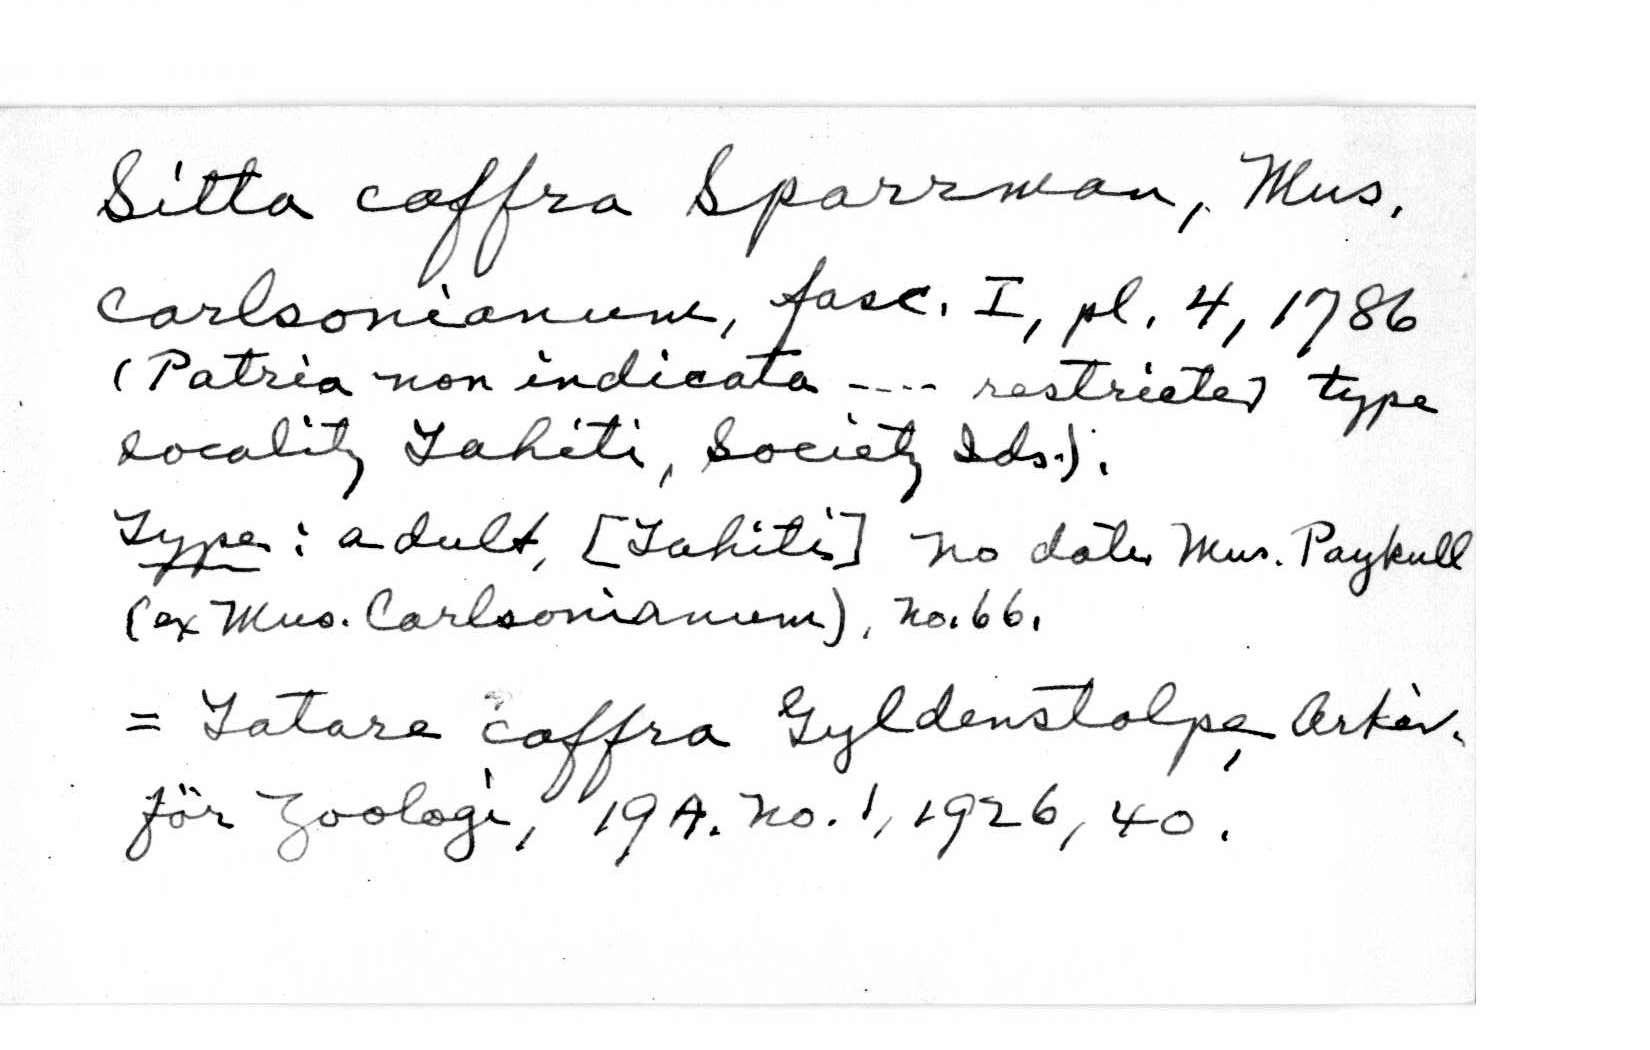 Sitta caffra Sparrman, Mus.
Carlsonianum, fasc. I, pl. 4, 1786
(Patria non indicata ---- restricted type
locality Tahiti, Society Ids.).
Type: adult, [Tahiti] no date Mus. Paykull
(ex Mus. Carlsonianum), no. 66.
= Tatare caffra Gyldenstolpe, Arkiv.
för Zoologi, 19A. no. 1, 1926, 40.